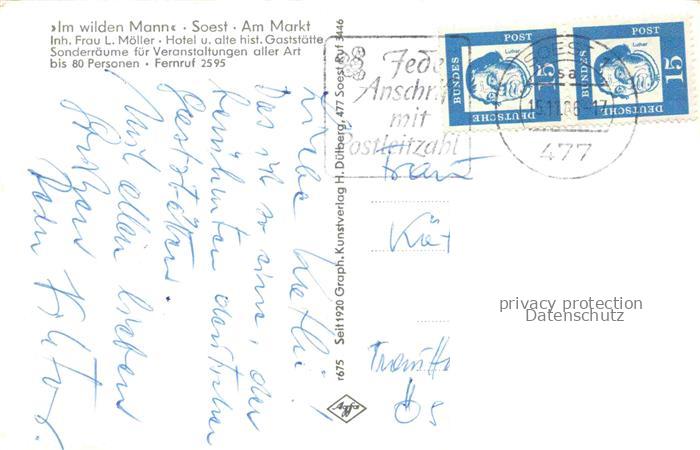 ›Im wilden Mann‹ · Soest · Am Markt
Inh. Frau L. Möller · Hotel u. alte hist. Gaststätte
Sonderräume für Veranstaltungen aller Art
bis 80 Personen · Fernruf 2595
Das ist so eine, der
berühmten deutschen
Gaststätten.
Mit allen lieben
Grüßen
r675 Seit 1920 Graph. Kunstverlag H. Dülberg, 477 Soest Ruf 3446
Agfa
Jede
Anschrift
mit
Postleitzahl
DEUTSCHE BUNDESPOST
Luther
15
DEUTSCHE BUNDESPOST
Luther
15
SOEST
477
Frau
privacy protection
Datenschutz